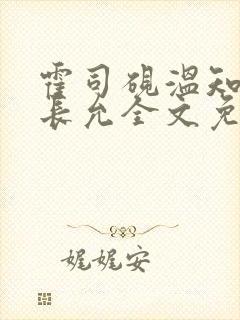 霍司砚温知
长允全文免
娓娓安